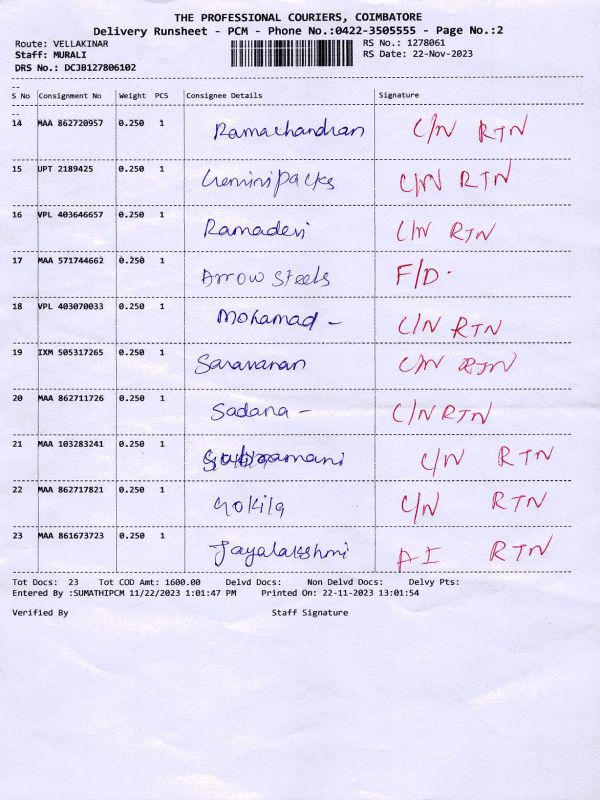 THE PROFESSIONAL COURIERS, COIMBATORE
Delivery Runsheet - PCM - Phone No.:0422-3505555 - Page No.:2
Route: VELLAKINAR RS No.: 1278061
Staff: MURALI RS Date: 22-Nov-2023
DRS No.: DCJB127806102
S No Consignment No Weight PCS Consignee Details Signature
14 MAA 862720957 0.250 1 Ramachandran C/N RTN
15 UPT 2189425 0.250 1 Geminipacks C/N RTN
16 VPL 403646657 0.250 1 Ramadevi C/N RTN
17 MAA 571744662 0.250 1 Arrow Steels F/D.
18 VPL 403070033 0.250 1 Mohamad - C/N RTN
19 IXM 505317265 0.250 1 Saravanan C/N RTN
20 MAA 862711726 0.250 1 Sadana - C/N RTN
21 MAA 103283241 0.250 1 Subramani C/N RTN
22 MAA 862717821 0.250 1 Gokila C/N RTN
23 MAA 861673723 0.250 1 Jayalakshmi A-I RTN
Tot Docs: 23 Tot COD Amt: 1600.00 Delvd Docs: Non Delvd Docs: Delvy Pts:
Entered By :SUMATHIPCM 11/22/2023 1:01:47 PM Printed On: 22-11-2023 13:01:54
Verified By Staff Signature